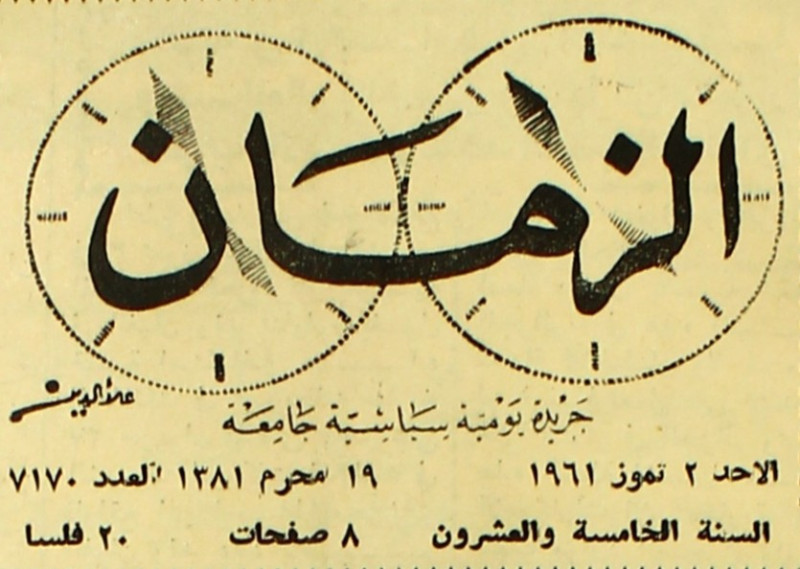 الزمان
علاء الدين
جَريدة يَوْميَة سيَاسْيَّة جَامِعَة
الاحد ٢ تموز ١٩٦١ ١٩ محرم ١٣٨١ العدد ٧١٧٠
السنة الخامسة والعشرون ٨ صفحات ٢٠ فلسا